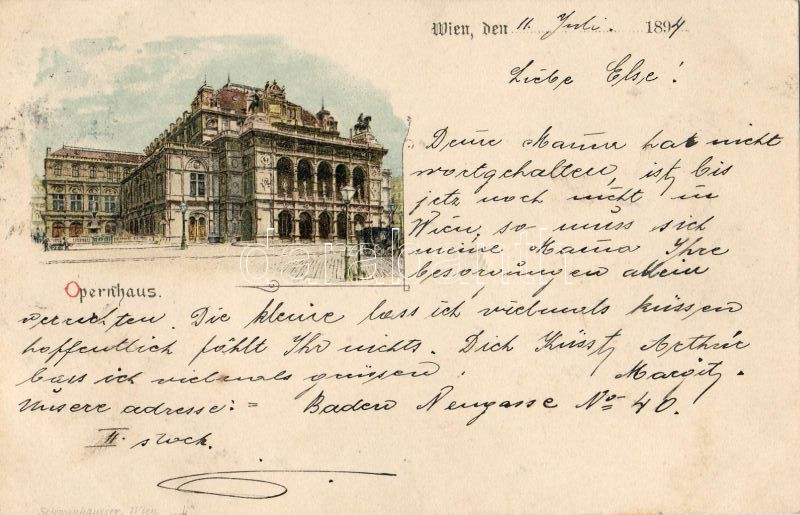 Wien, den 11. Juli. 1894
Liebe Else!
Deine Mama hat nicht
wortgehalten, ist bis
jetz noch nicht in
Wien, so muss sich
meine Mama Ihre
besorgungen allein
Opernhaus.
verrichten. Die kleine lass ich vielmals küssen
hoffentlich föhlt Ihr nichts. Dich Küsst, Arthur
lass ich vielmals grüssen. Margit.
Unsere adresse: = Baden Neugasse No 40.
II. stock.
Schwanhausser, Wien